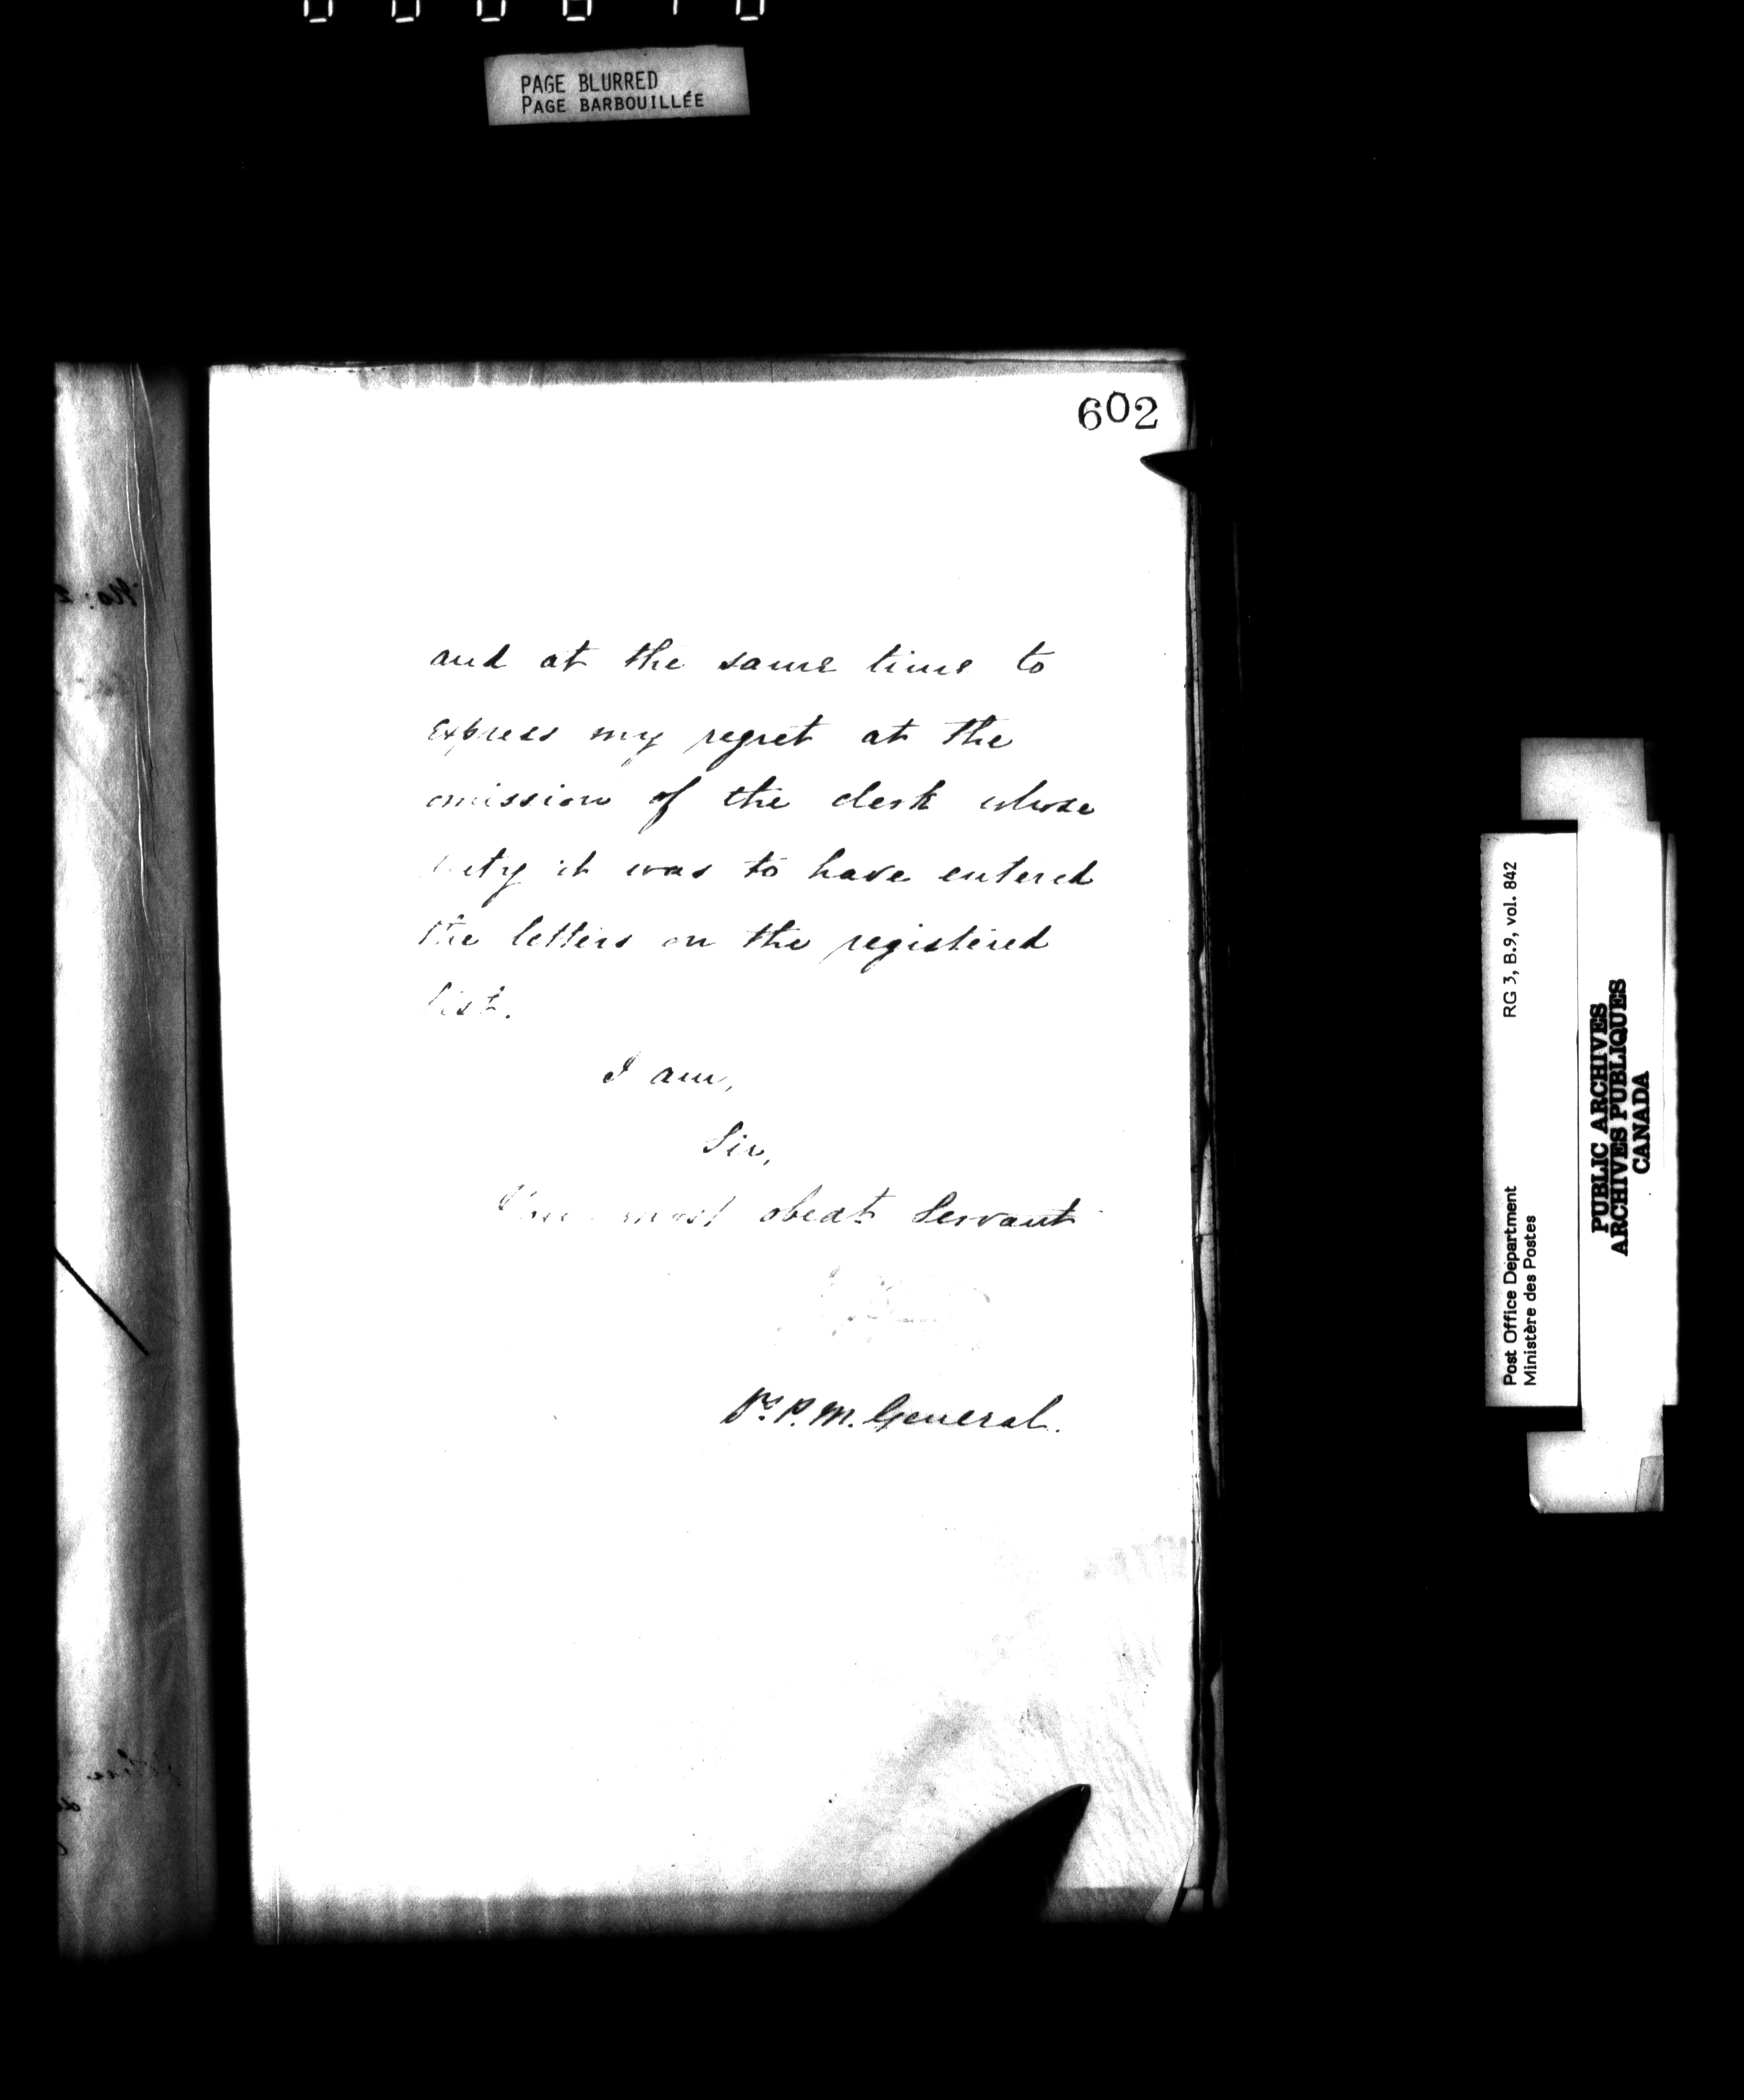 PAGE BLURRED
PAGE BARBOUILLÉE
602
and at the same time to
express my regret at the
omission of the clerk whose
duty it was to have entered
the letters on the registered
list.
I am,
Sir,
Your most obedt Servant
P.M. General.
RG 3, B.9, vol. 842
Post Office Department
Ministère des Postes
PUBLIC ARCHIVES
ARCHIVES PUBLIQUES
CANADA